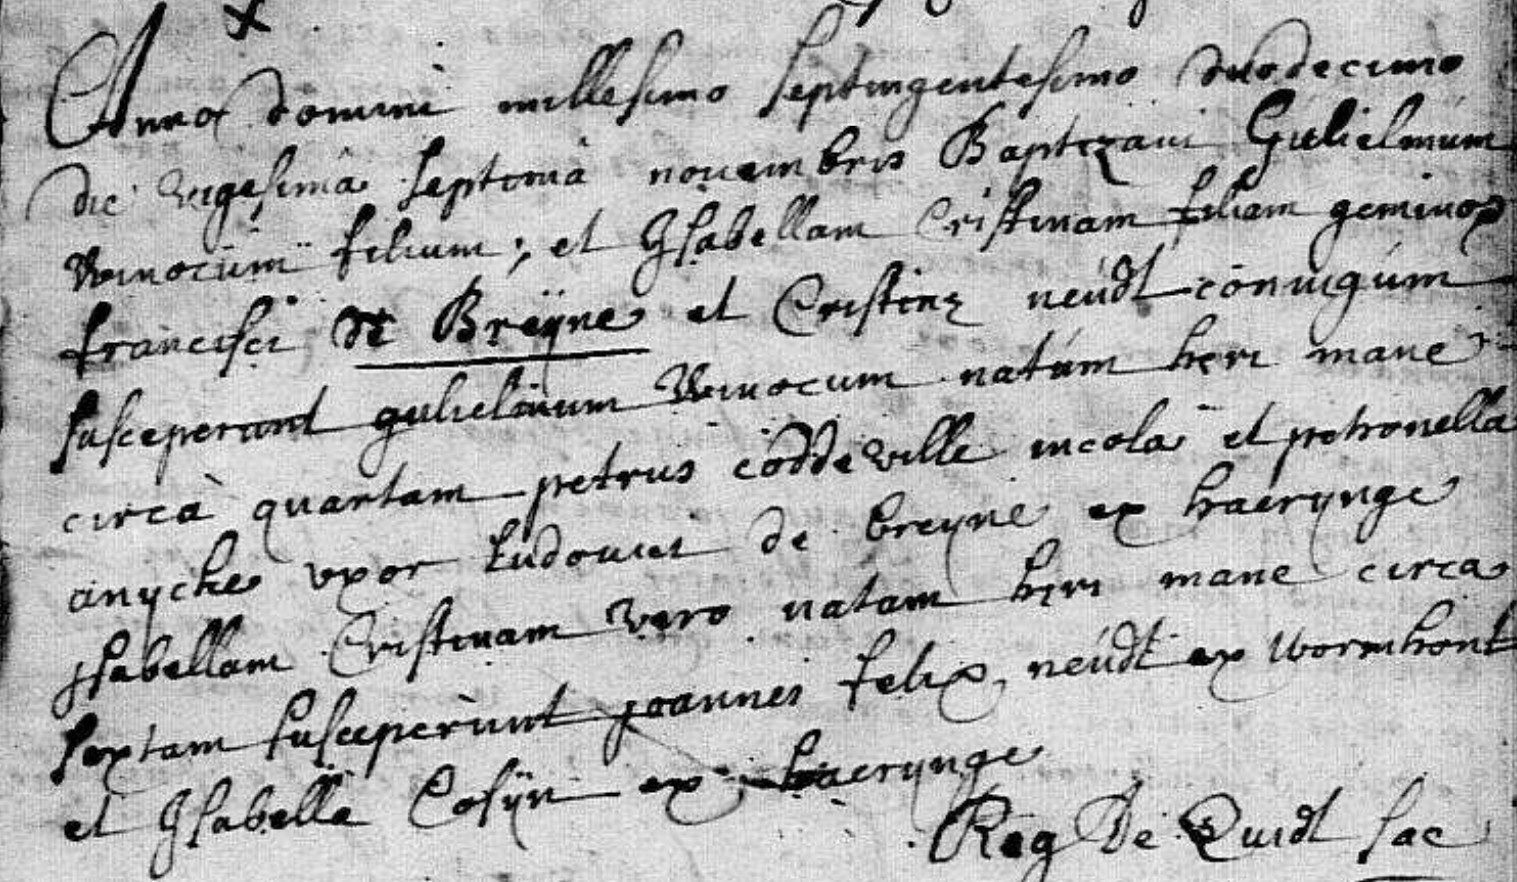 Anno domini millesimo septingentesimo duodecimo
die vigesima septima novembris Baptizavi Gulielmum
Winocum filium; et Isabellam Cristinam filiam geminos
francisci de Breÿne et Cristinę neudt coniugum
susceperunt gulielmum Winocum natum heri mane
circa quartam petrus coddeville incola et petronella
anyche uxor Ludovici de breyne ex haerynge
Isabellam Cristinam vero natam heri mane circa
sextam susceperunt joannes felix neudt ex wormhout
et Isabella Cosÿn ex haerynge
Reg De Quidt sac